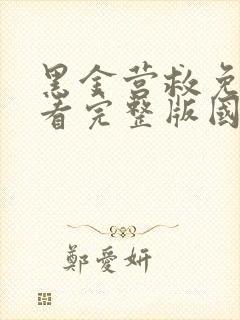 黑金营救免
看完整版国
鄭愛妍